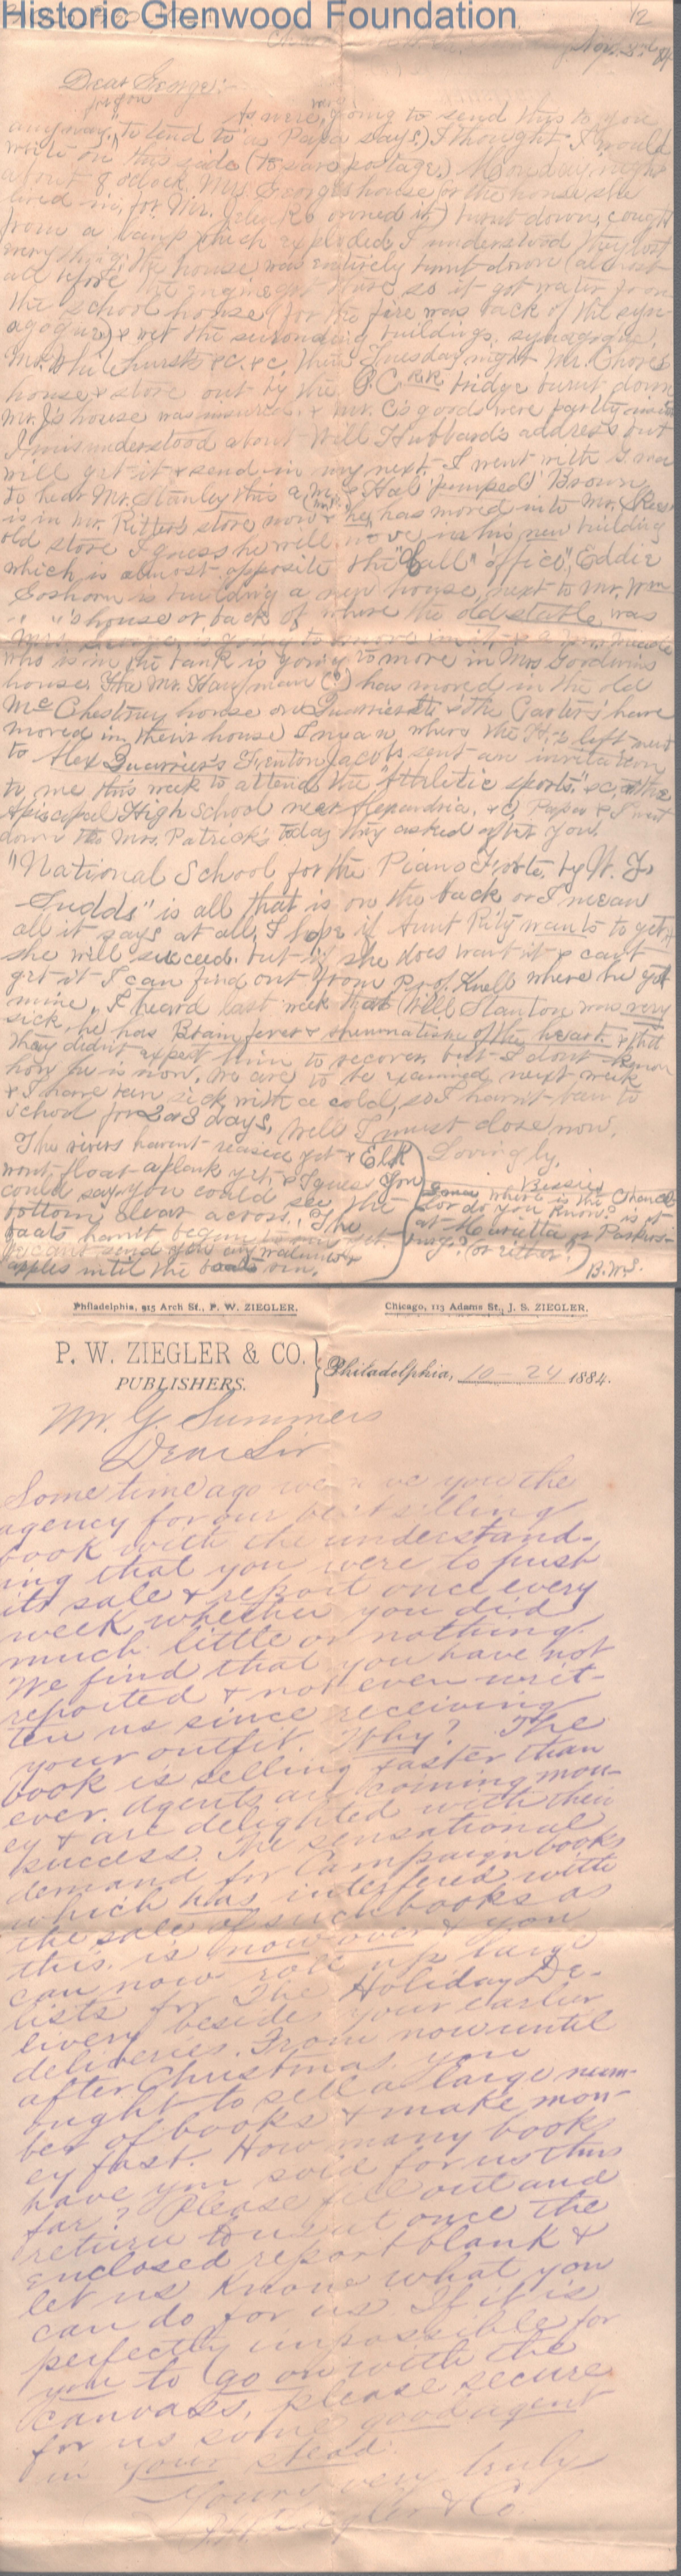 Historic Glenwood Foundation
1/2
Nov. 3rd 84
Dear George:
for you
As were going to send this to you
anyway, "to tend to" as Papa says.) I thought I would
write on this side (to save postage.) Monday night
about 8 oclock, Mrs. George's house (or the house she
lived in, for Mr. owned it) burnt down, caught
from a lamp which exploded, I understood they lost
everything; the house was entirely burnt down (almost
all before the engine got there so it got water from
the school house (for the fire was back of the syn-
agogue) & wet the surrounding buildings, synagogue,
Mr. Whitehurst's &c. &c. then Tuesday night Mr.
house & store out by the O.C.R.R. bridge burnt down
Mr. J's house was insured & Mr. C's goods were partly
I misunderstood about Will Hubbard's address but
will get it & send in my next. I went with G.ma
to hear Mr. Stanley this a.m. & Hal 'pumped' Brown
is in Mr. Ritter's store now & he has moved into Mr.
old store I guess he will move in his new building
which is almost opposite the "Call" office", Eddie
Goshorn is building a new house, next to Mr. Wm
" "'s house or back of where the old stable was
Mrs. George is going to move in it &
who is in the bank is going to move in Mrs Goodwin's
house. The Mr. Hayman (?) has moved in the old
McChestney house on Quarrier St & the Carters' have
moved in their house I mean where the H.'s left next
to Alex Quarrier's Fenton Jacobs sent an invitation
to me this week to attend the "Athletic sports." &c, at the
Episcopal High School near Alexandria, &c. Papa & I went
down to Mrs. Patrick's today they asked after you.
"National School for the Piano Forte, by W. F.
Sudds" is all that is on the back or I mean
all it says at all, I hope if Aunt Rity wants to get it
she will succeed. but if she does want it & can't
get it I can find out from Prof. Knell where he got
mine, I heard last week that Will Stanton was very
sick, he has Brain fever & rheumatism of the heart & that
they didn't expect him to recover, but I dont know
how he is now. We are to be examined next week
& I have been sick with a cold, so I havn't been to
school for 2 or 3 days, Well I must close now.
The rivers havent raised yet & Elk
wont float a plank yet, & I guess you
could say you could see the
bottom clear across. The
boats havn't begun to run yet.
We cant send you any walnuts &
apples until the boats run.
Lovingly,
Bessie
G.ma where is the Chancel-
lor do you know? is it
at Marietta or Parkers-
burg? (or either?)
B.M.S.
Philadelphia, 915 Arch St., P. W. ZIEGLER.
Chicago, 113 Adams St., J. S. ZIEGLER.
P. W. ZIEGLER & CO.
PUBLISHERS.
Philadelphia, 10-24 1884.
Mr. G. Summers
Dear Sir
Some time ago we gave you the
agency for our best selling
book with the understand-
ing that you were to push
its sale & report once every
week whether you did
much little or nothing.
We find that you have not
reported & not even writ-
ten us since receiving
your outfit. Why? The
book is selling faster than
ever. Agents are coining mon-
ey & are delighted with their
success. The sensational
demand for Campaign books
which has interfered with
the sale of such books as
this is now over & you
can now roll up large
lists for The Holiday De-
livery besides your earlier
deliveries. From now until
after Christmas, you
ought to sell a large num-
ber of books & make mon-
ey fast. How many books
have you sold for us thus
far? Please fill out and
return to us at once the
enclosed report blank &
let us know what you
can do for us If it is
perfectly impossible for
you to go on with the
canvass, please secure
for us some good agent
in your stead.
Yours very truly
P. W. Ziegler & Co.